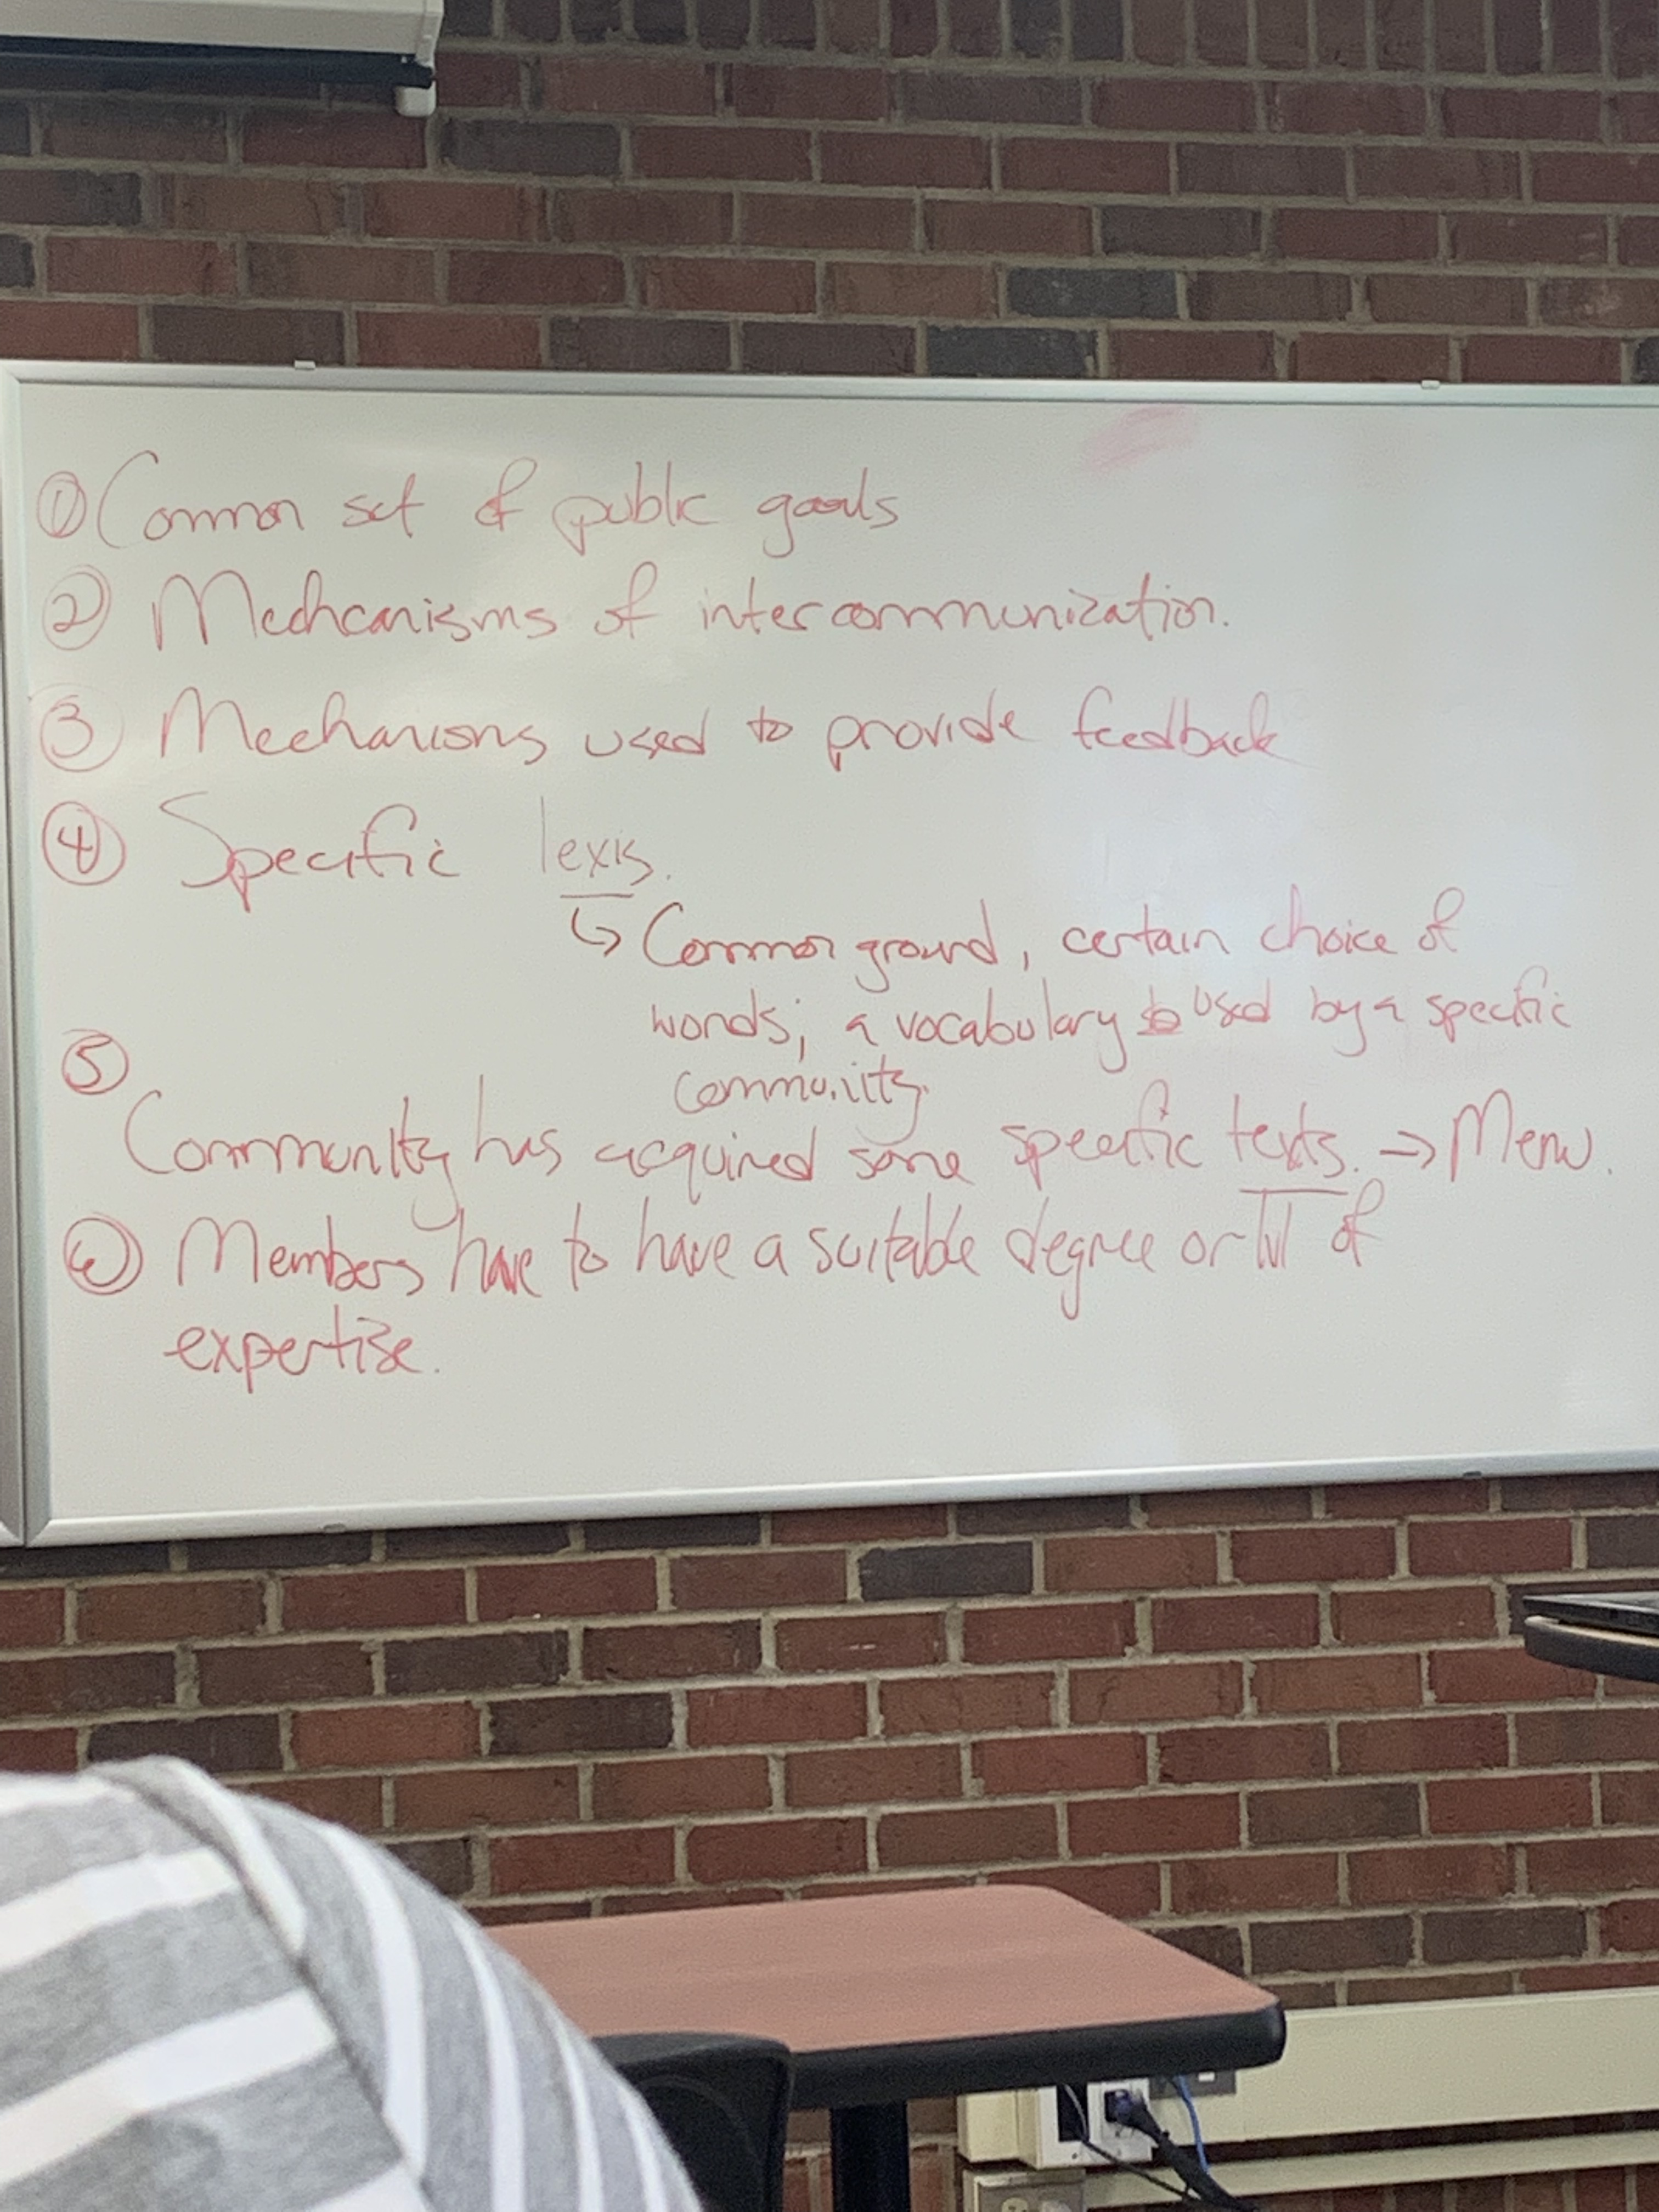 ① Common set of public goals
② Mechcanisms of intercommunization.
③ Mechanisms used to provide feedback
④ Specific lexis.
↳ Common ground, certain choice of
words; a vocabulary used by a specific
community.
⑤
Community has acquired some specific texts. ⇒ Menu.
⑥ Members have to have a suitable degree or lvl of
expertise.